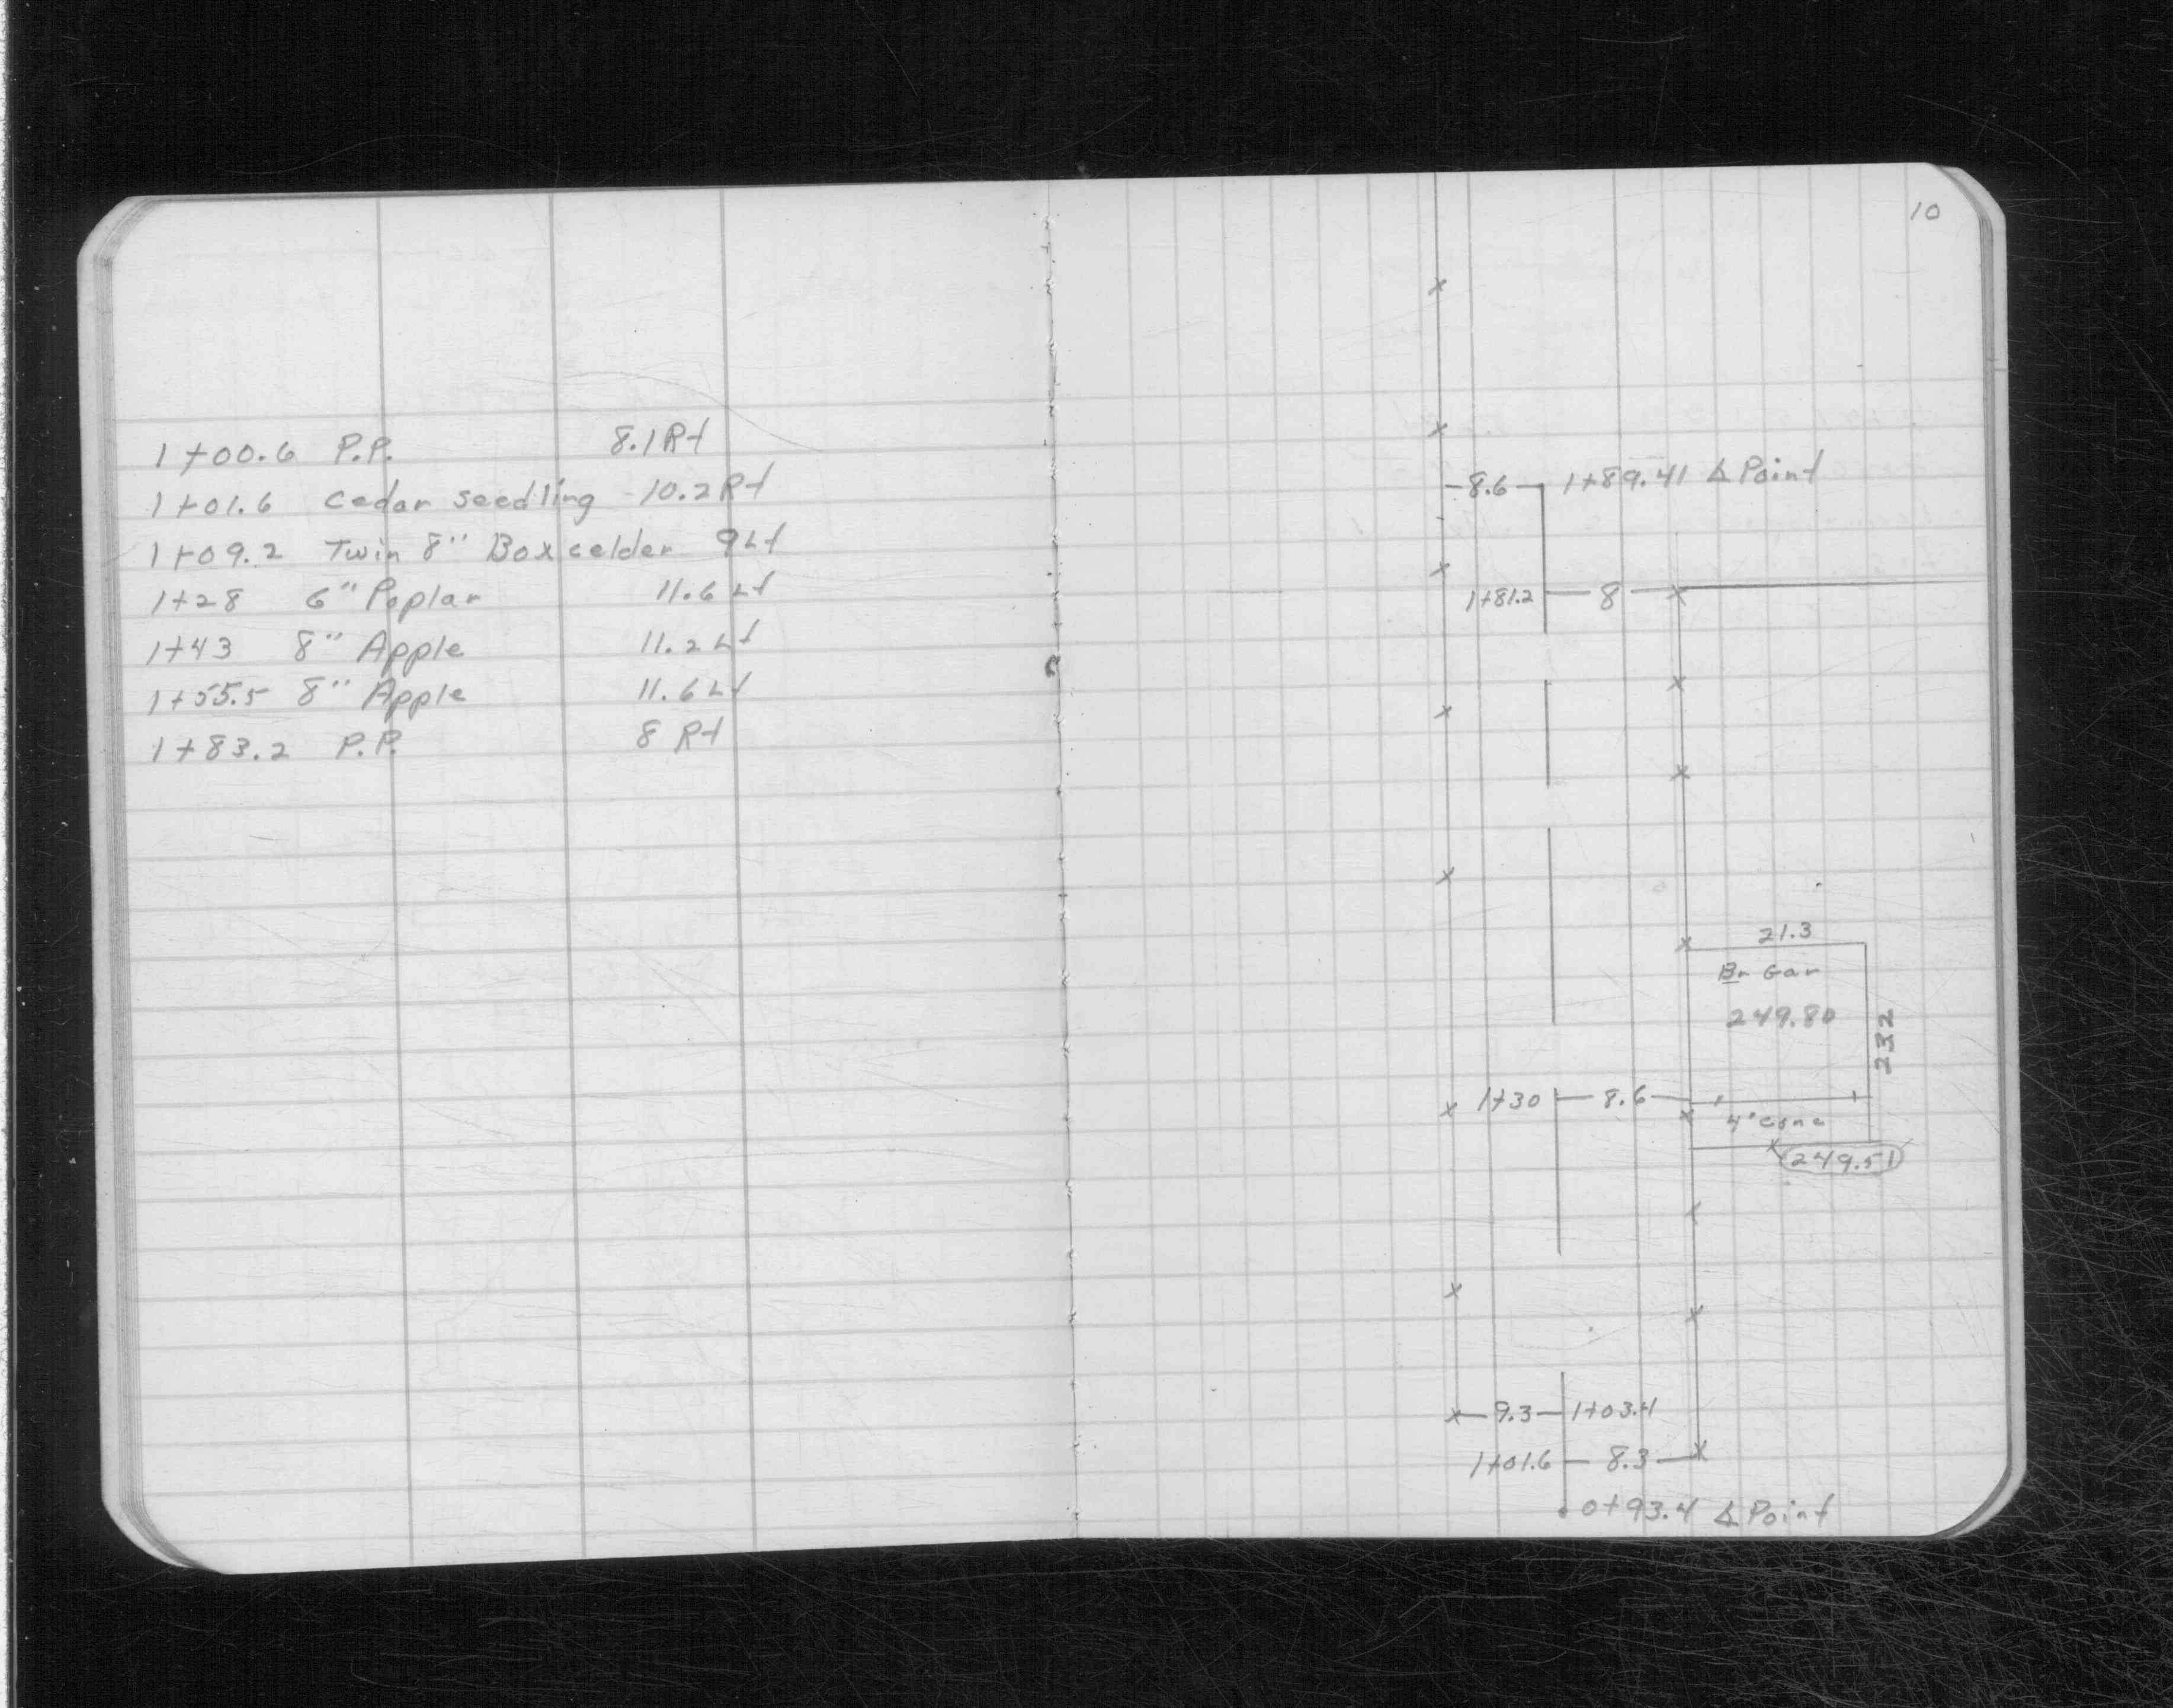 1+00.6 P.P. 8.1 Rt
1+01.6 Cedar seedling - 10.2 Rt
1+09.2 Twin 8" Boxcelder 9 Lt
1+28 6" Poplar 11.6 Lt
1+43 8" Apple 11.2 Lt
1+55.5 8" Apple 11.6 Lt
1+83.2 P.P. 8 Rt
10
8.6 1+89.41 ∆ Point
1+81.2 8
21.3
Br Gar
249.80
232
1+30 8.6
4" conc
249.51
9.3 1+03.4
1+01.6 8.3
0+93.4 ∆ Point